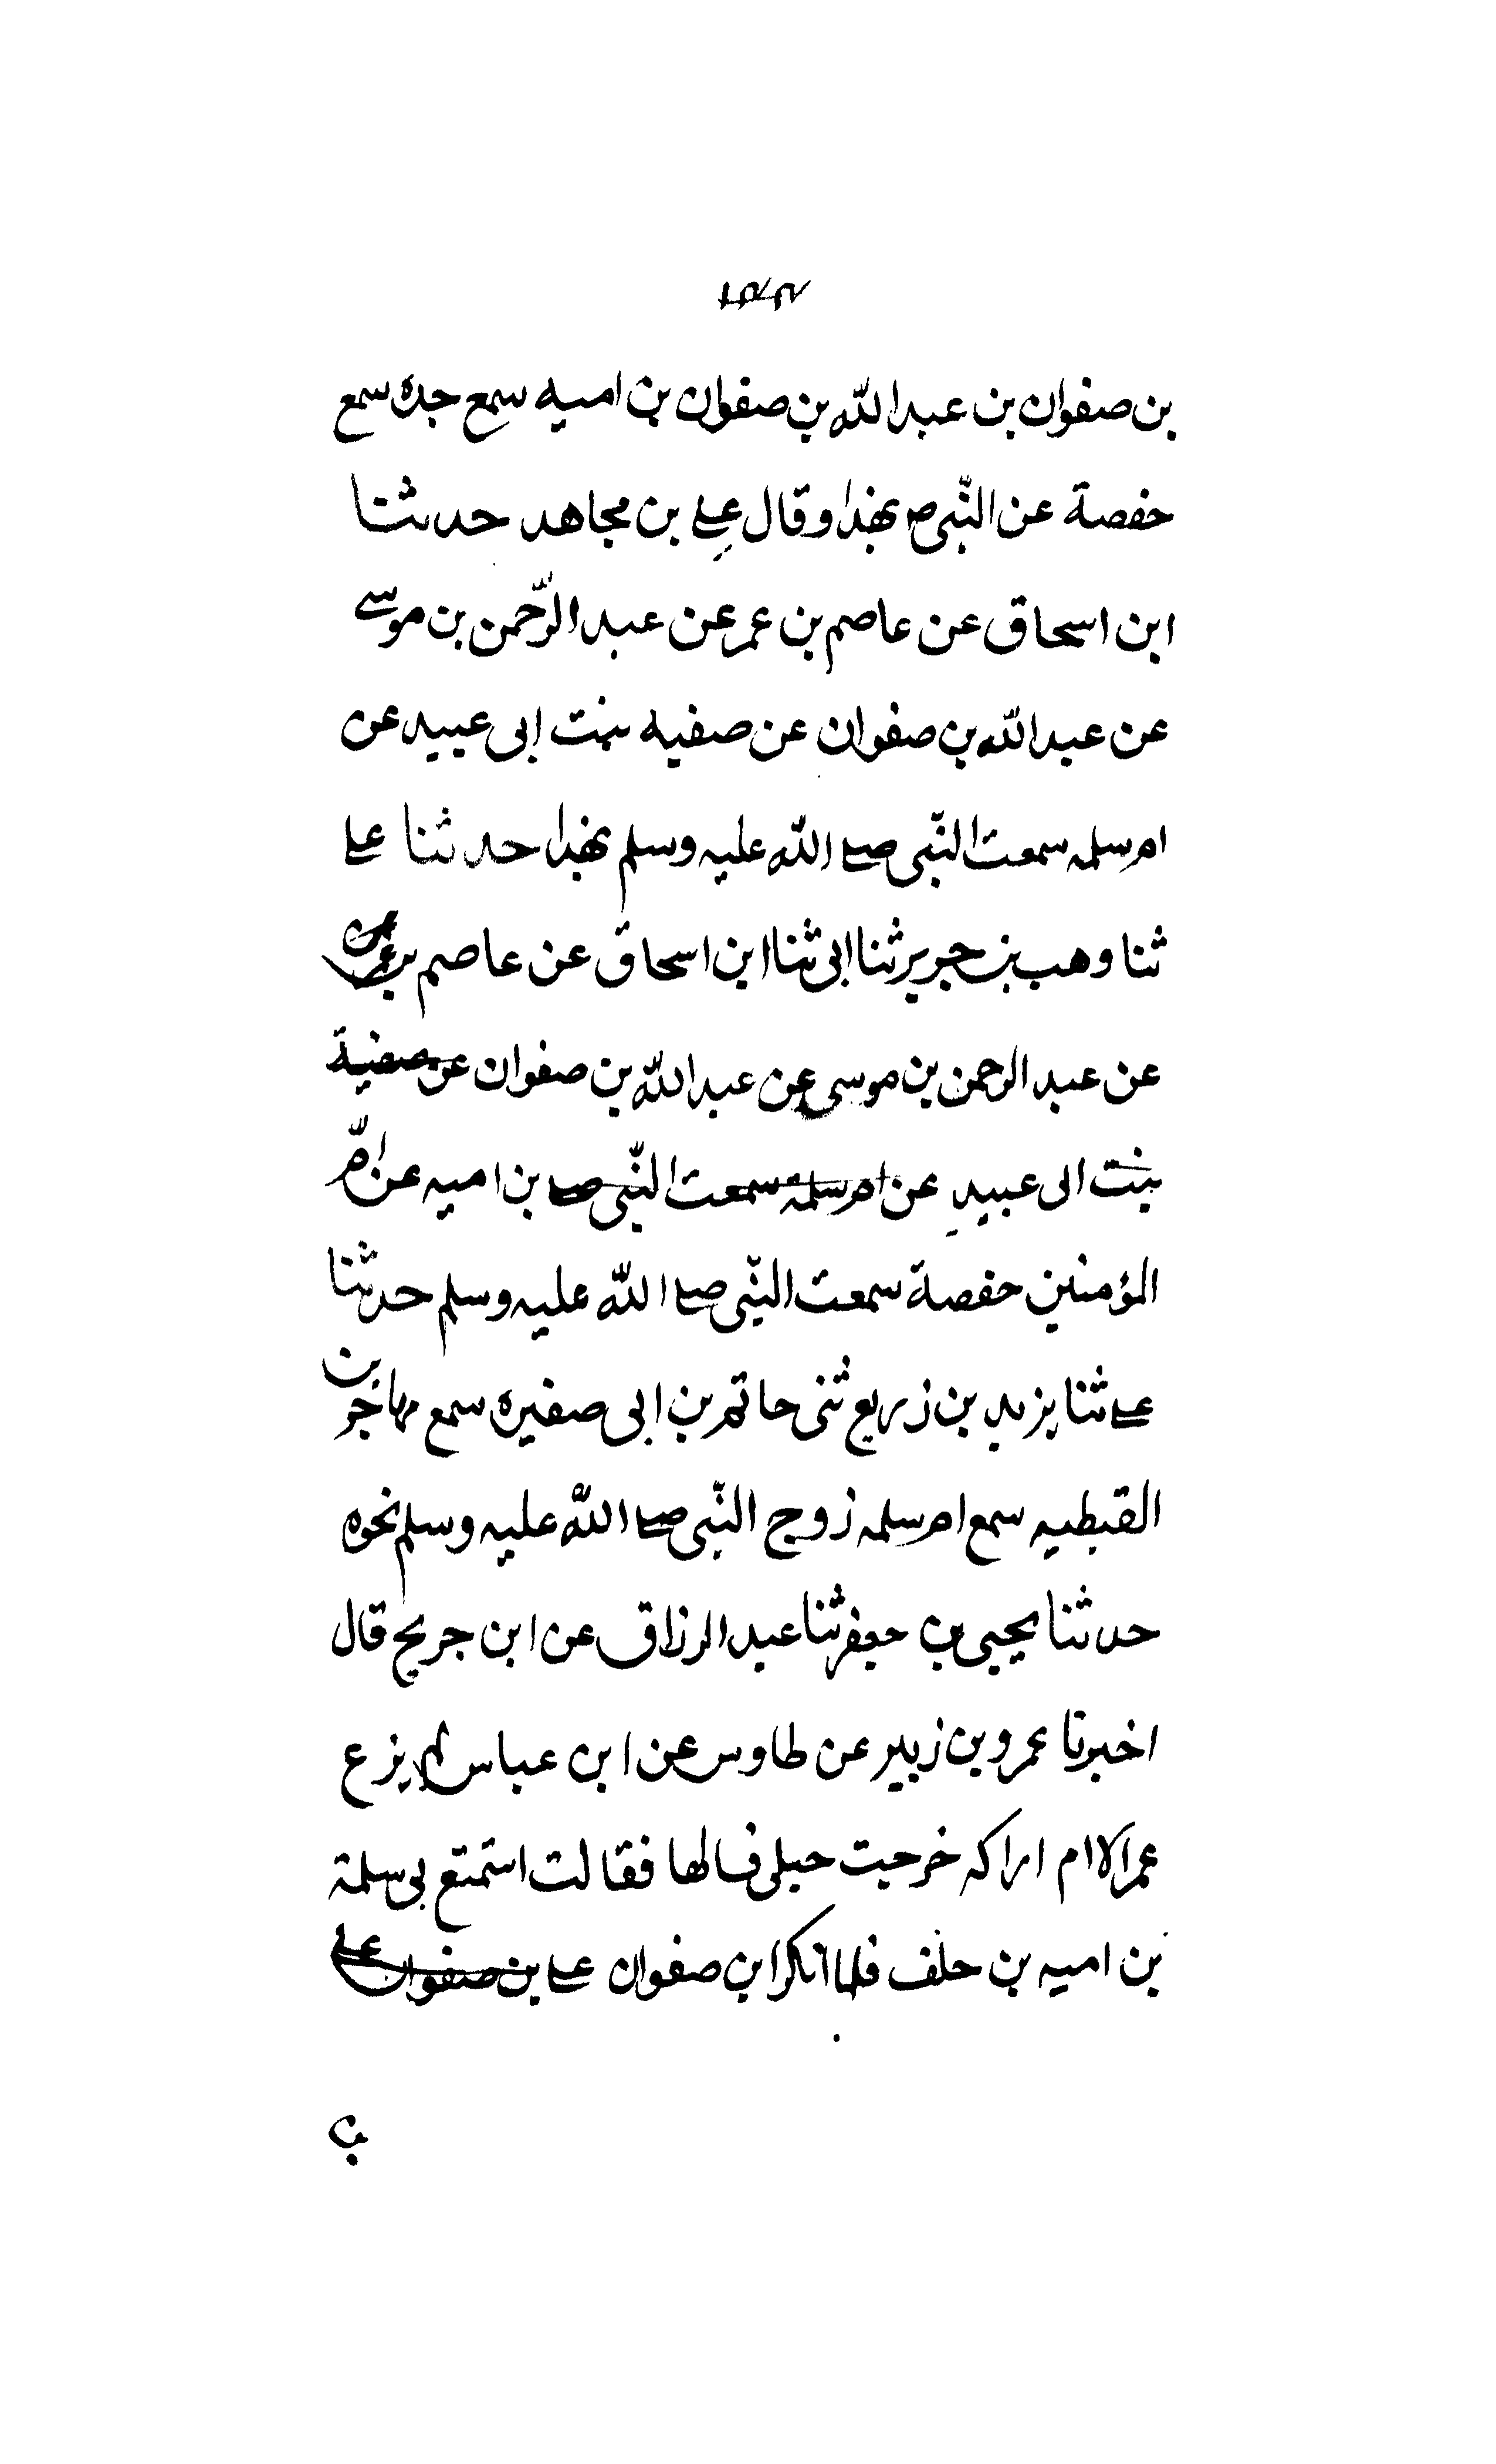 بن صفوان بن عبد الله بن صفوان بن اميه سمع جده سمع
حفصة عن النّبى ص بهذا وقال على بن مجاهد حدثنا
ابن اسحاق عن عاصم بن عمر عن عبد الرّحمن بن موسے
عن عبد الله بن صفوان عن صفيه بنت ابى عبيد عن
ام سلمه سمعت النّبى صلے الله عليه وسلم بهذا حدثنا على
ثنا وهب بن جرير ثنا ابى ثنا ابن اسحاق عن عاصم بن عمر
عن عبد الرحمن بن موسى عن عبد الله بن صفوان عن صفية
بنت ابى عبيد عن ام سلمة سمعت النّبى صلے بن اميه عن امّ
المؤمنين حفصة سمعت النّبى صلے الله عليه وسلم حدثنا
علے ثنا يزيد بن زريع ثنى حاتم بن ابى صغيره سمع مهاجر بن
القبطيه سمع ام سلمه زوج النّبى صلے الله عليه وسلم نحوه
حدثنا يحيى بن جعفر ثنا عبد الرزاق عن ابن جريج قال
اخبرنا عمرو بن زبير عن طاوس عن ابن عباس لم يزع
عمر الا ام اراكه خرجت حبلى فسالها فقالت استمتع بى سلمة
بن اميه بن خلف فلما انكر ابن صفوان علے بن صفوان علے
ب